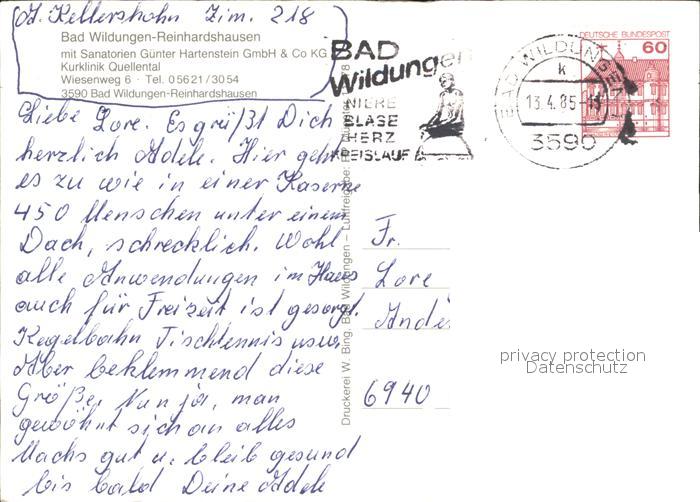 Kellershohn Zim. 218
Bad Wildungen-Reinhardshausen
mit Sanatorien Günter Hartenstein GmbH & Co KG
Kurklinik Quellental
Wiesenweg 6 · Tel. 05621/3054
3590 Bad Wildungen-Reinhardshausen
Liebe Lore. Es grüßt Dich
herzlich Adele. Hier geht
es zu wie in einer Kaserne
450 Menschen unter einem
Dach, schrecklich. Wohl
alle Anwendungen im Haus
auch für Freizeit ist gesorgt.
Kegelbahn Tischtennis usw.
Aber beklemmend diese
Größe. Nun ja, man
gewöhnt sich an alles
Machs gut u. bleib gesund
bis bald Deine Adele
Druckerei W. Bing, Bad Wildungen – Luftfreigabe:
BAD
Wildungen
NIERE
BLASE
HERZ
KREISLAUF
BAD WILDUNGEN
k
13.4.85
3590
DEUTSCHE BUNDESPOST
60
Fr.
Lore
6940
privacy protection
Datenschutz